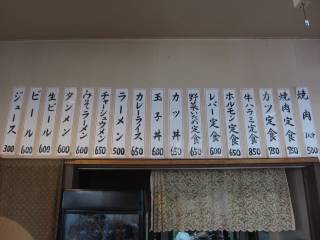 焼肉 500
焼肉定食 780
カツ定食 780
牛ハラミ定食 850
ホルモン定食 650
レバー定食 600
野菜いため定食 650
カツ丼 650
玉子丼 600
カレーライス 650
ラーメン 500
チャーシューメン 650
みそラーメン 600
タンメン 600
生ビール 600
ビール 600
ジュース 300